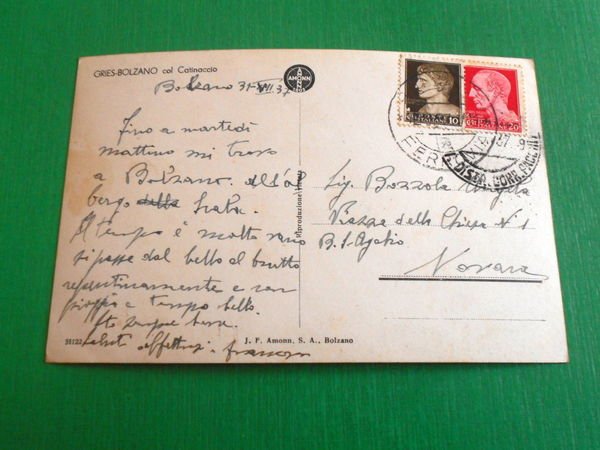 GRIES-BOLZANO col Catinaccio
AMONN
Bolzano 31-VII-37
Fino a martedì
mattino mi trovo
a Bolzano. all'al
bergo della Scala.
Il tempo è molto vario
si passa dal bello al brutto
repentinamente e con
pioggia e tempo bello.
Sto sempre bene.
Saluti affettuosi
Riproduzione
Sig. Bozzola Angela
Piazza della Chiesa N° 1
B. S. Agabio
Novara
POSTE ITALIANE 10
POSTE ITALIANE 20
FERR
DIST. CORR. PACCHI
35122
J. F. Amonn, S. A., Bolzano